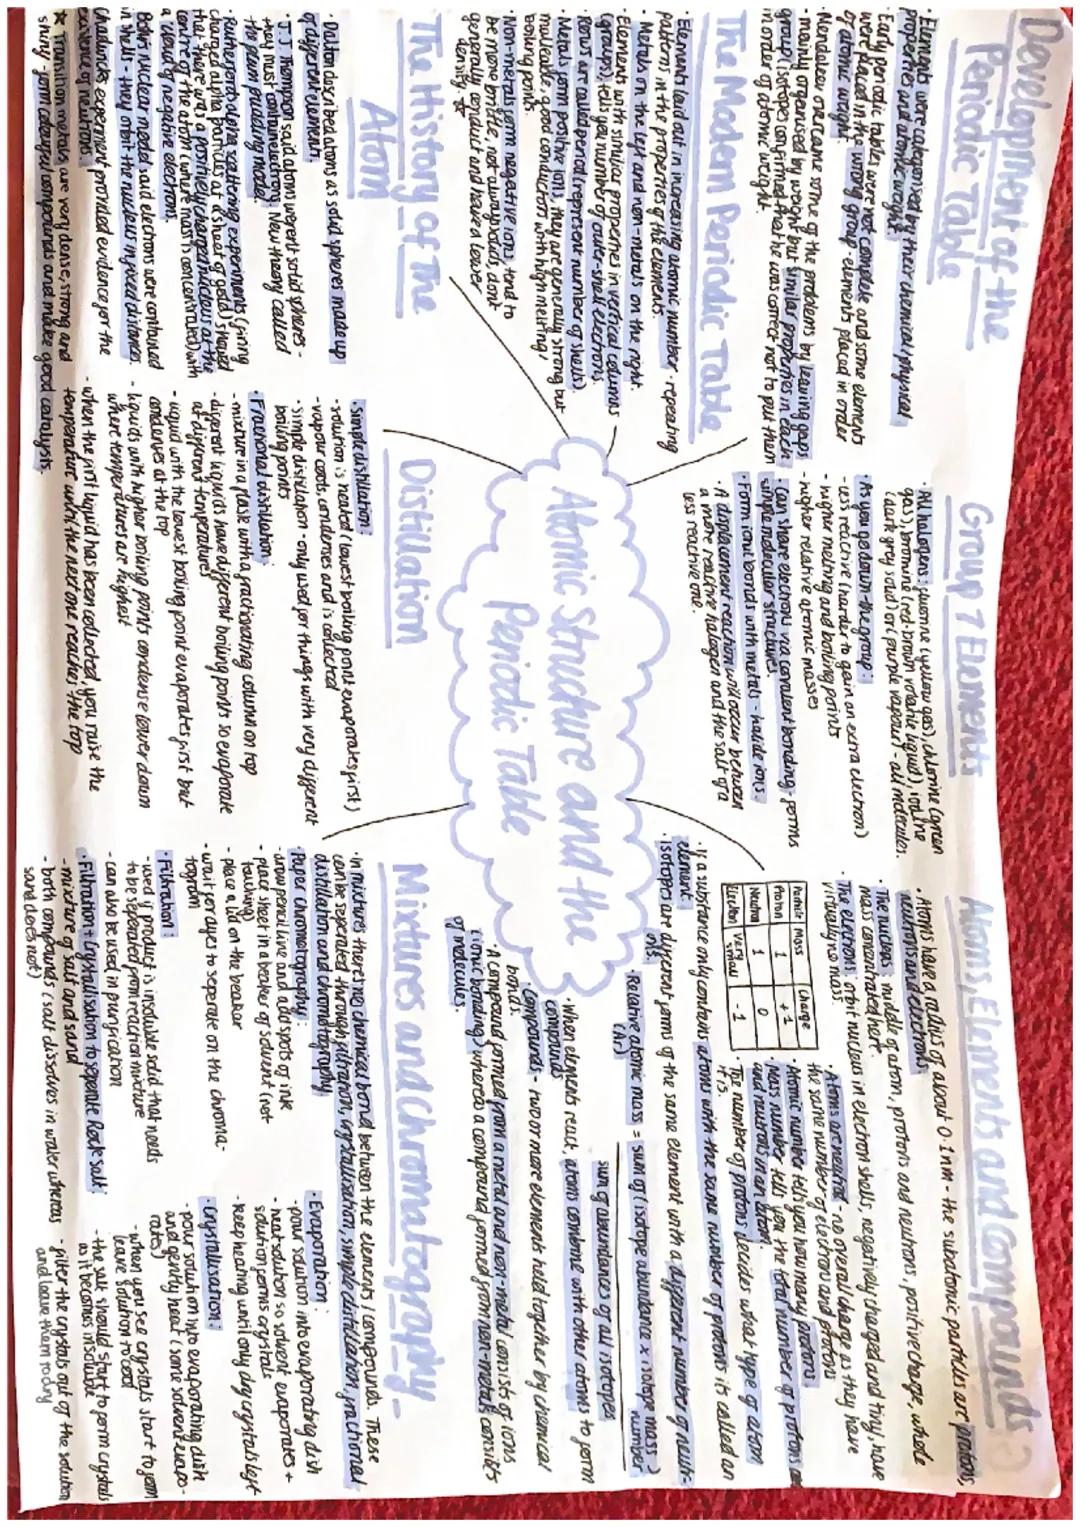 Development of the
Periodic Table
· Elements were categorised by their chemical/physical
properties and atomic weight.
· Early periodic tables were not complete and some elements
were placed in the wrong group - elements placed in order
of atomic weight.
· Mendeleev overcame some of the problems by leaving gaps
- mainly organised by weight but similar properties in each
group (isotopes confirmed that he was correct not to put them
in order of atomic weight.
The Modern Periodic Table
· Elements laid out in increasing atomic number - repeating
patterns in the properties of the elements.
· Metals on the left and non-metals on the right.
· Elements with similar properties in vertical columns
(groups), tells you number of outer-shell electrons.
· Rows are called periods (represent number of shells).
· Metals form positive ions, they are generally strong but
malleable, good conductors with high melting/
boiling points.
· Non-metals form negative ions, tend to
be more brittle, not always solids, don't
generally conduct and have a lower
density. ★
The History of The
Atom
· Dalton described atoms as solid spheres made up
of different elements.
· J.J Thompson said atoms weren't solid spheres -
they must contain electrons. New theory called
the plum pudding model.
· Rutherford's alpha scattering experiments (firing
charged alpha particles at a sheet of gold) showed
that there was a positively charged nucleus at the
centre of the atom (where mass is concentrated) with
a 'cloud' of negative electrons.
· Bohr's nuclear model said electrons were contained
in shells - they orbit the nucleus in fixed distances.
· Chadwick's experiment provided evidence for the
existence of neutrons.
★ Transition metals are very dense, strong and
shiny - form colourful compounds and make good catalysts.
Group 7 Elements
· All halogens: fluorine (yellow gas), chlorine (green
gas), bromine (red-brown volatile liquid), iodine
(dark grey solid) or (purple vapour) - all molecules.
· As you go down the group:
- less reactive (harder to gain an extra electron)
- higher melting and boiling points
- higher relative atomic masses
· Can share electrons via covalent bonding - forms
simple molecular structures.
· Form ionic bonds with metals - halide ions.
· A displacement reaction will occur between
a more reactive halogen and the salt of a
less reactive one.
Atomic Structure and the
Periodic Table
Distillation
· Simple distillation:
- solution is heated (lowest boiling point evaporates first)
- vapour cools, condenses and is collected
- simple distillation - only used for things with very different
boiling points
· Fractional distillation:
- mixture in a flask with a fractionating column on top
- different liquids have different boiling points so evaporate
at different temperatures
- liquid with the lowest boiling point evaporates first but
condenses at the top
- liquids with higher boiling points condense lower down
where temperatures are highest
- when the first liquid has been collected, you raise the
temperature until the next one reaches the top
Atoms, Elements and Compounds
· Atoms have a radius of about 0.1nm - the subatomic particles are protons,
neutrons and electrons.
· The nucleus: middle of atom, protons and neutrons, positive charge, whole
mass concentrated here.
· The electrons: orbit nucleus in electron shells, negatively charged and tiny, have
virtually no mass.
Particle Mass Charge
Proton 1 +1
Neutron 1 0
Electron very small -1
· Atoms are neutral - no overall charge as they have
the same number of electrons and protons
· Atomic number tells you how many protons.
· Mass number tells you the total number of protons
and neutrons in an atom.
· The number of protons decides what type of atom
it is.
· If a substance only contains atoms with the same number of protons its called an
element.
· Isotopes are different forms of the same element with a different number of neutr-
ons.
· Relative atomic mass = sum of (isotope abundance x isotope mass number)
(Ar)
sum of abundances of all isotopes
· When elements react, atoms combine with other atoms to form
compounds
· Compounds - two or more elements held together by chemical
bonds.
· A compound formed from a metal and non-metal consists of ions
(ionic bonding) whereas a compound formed from non-metals consists
of molecules.
Mixtures and Chromatography
· In mixtures there's no chemical bond between the elements/compounds. These
can be seperated through filtration, crystallisation, simple distillation, fractional
distillation and chromotography.
· Paper Chromotography:
- draw pencil line and add spots of ink
- place sheet in a beaker of solvent (not
touching)
- place a lid on the beaker
- wait for dyes to seperate on the chroma-
togram
· Filtration:
- used if product is insoluble solid that needs
to be seperated from reaction mixture
- can also be used in purification
· Filtration + Crystallisation to seperate Rock salt:
- mixture of salt and sand
- both compounds (salt dissolves in water whereas
sand does not)
· Evaporation:
- pour solution into evaporating dish
- heat solution so solvent evaporates +
solution forms crystals
- keep heating until only dry crystals left
· Crystallisation:
- pour solution into evaporating dish
and gently heat (some solvent evapo-
rates)
- when you see crystals start to form
leave solution to cool
- the salt should start to form crystals
as it becomes insoluble
- filter the crystals out of the solution
and leave them to dry